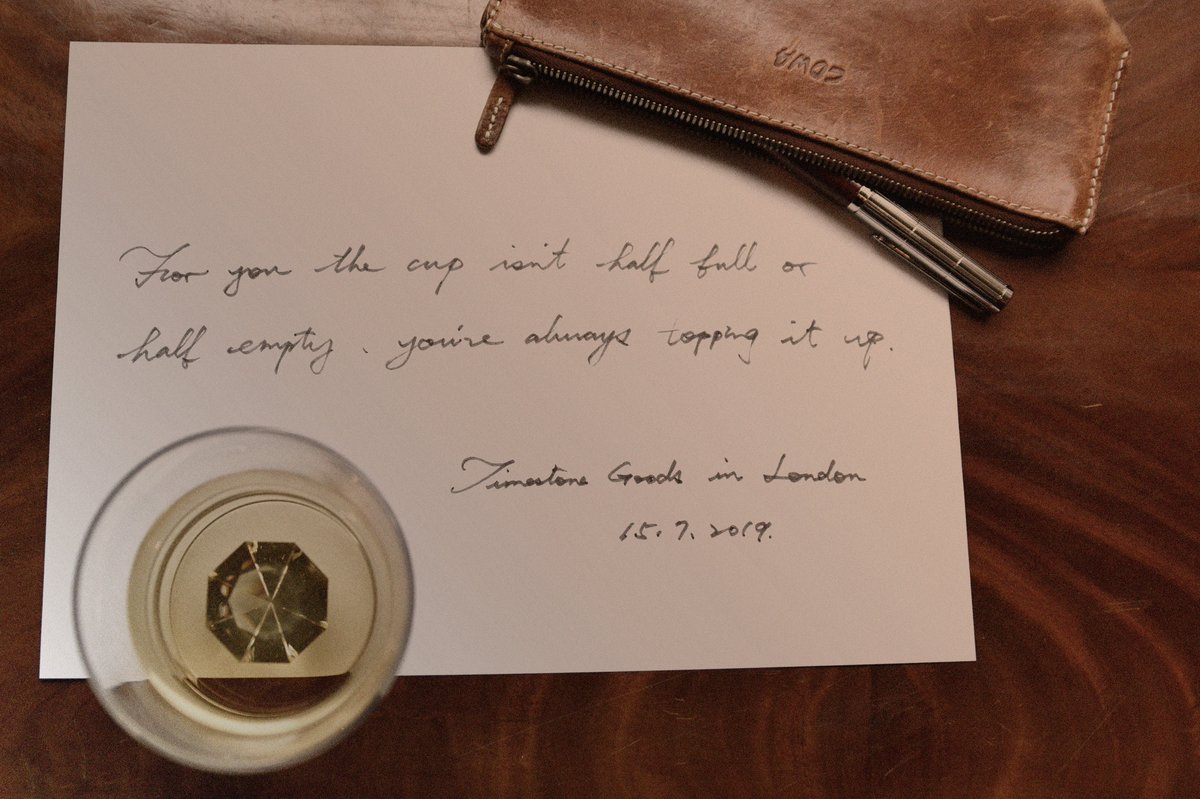 GOWA
For you the cup isn't half full or
half empty. you're always topping it up.
Timestone Goods in London
15.7.2019.